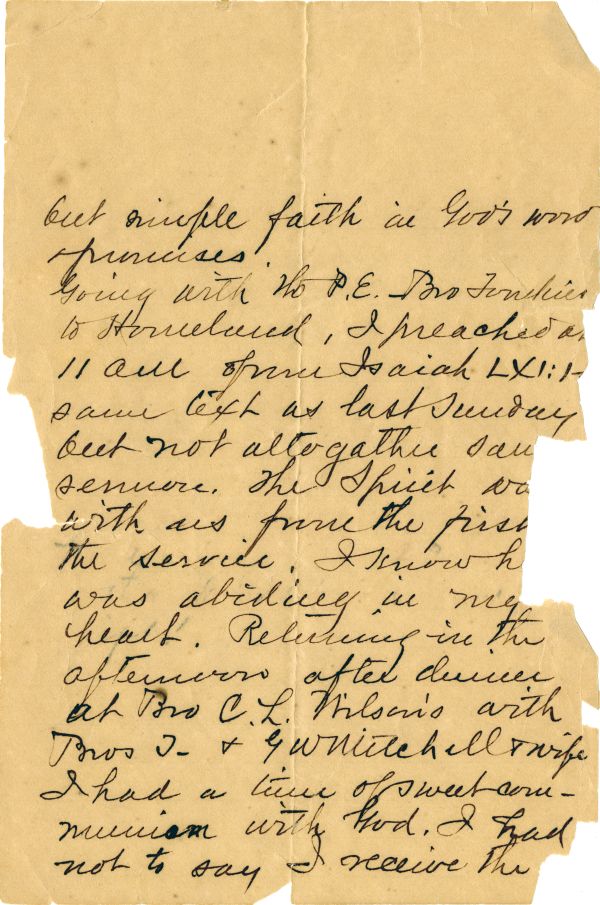 but simple faith in God's word
+ promises.
Going with the P.E. Bro
to Homeland, I preached at
11 am from Isaiah LXI:1-
same text as last Sunday
but not altogather sam
sermon. The Spirit wa
with us from the first
the service. I know h
was abiding in my
heart. Returning in the
afternoon after dinner
at Bro C. L. Wilson's with
Bros T- & G W Mitchell & wife
I had a time of sweet com-
munion with God. I had
not to say I receive the